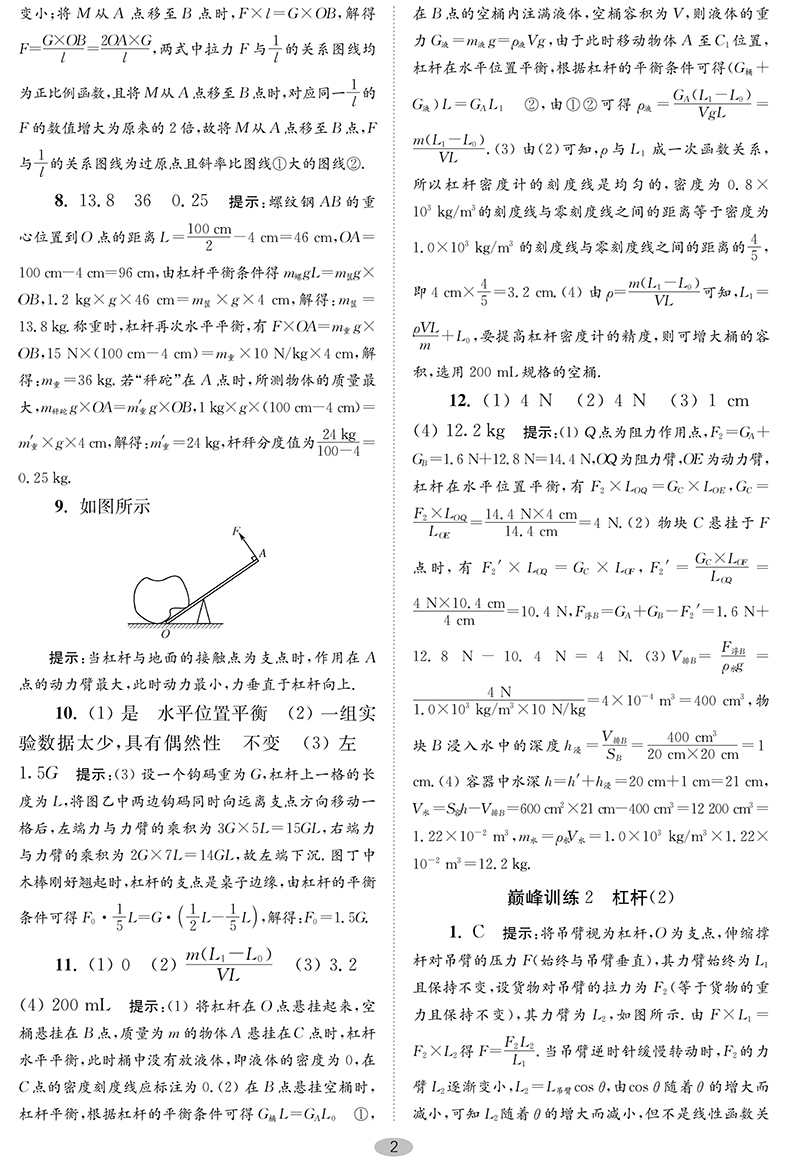 变小;将 M 从 A 点移至 B 点时,F×l=G×OB,解得
F=G×OB/l=2OA×G/l,两式中拉力 F 与1/l的关系图线均
为正比例函数,且将 M从 A点移至 B点时,对应同一1/l的
F 的数值增大为原来的 2 倍,故将 M从 A点移至 B点,F
与1/l的关系图线为过原点且斜率比图线①大的图线②.
8. 13.8 36 0.25 提示:螺纹钢 AB 的重
心位置到O 点的距离 L=100 cm/2-4 cm=46 cm,OA=
100 cm-4 cm=96 cm,由杠杆平衡条件得 m螺gL=m筐g×
OB,1.2 kg×g×46 cm=m筐×g×4 cm,解得:m筐=
13.8 kg.称重时,杠杆再次水平平衡,有 F×OA=m重g×
OB,15 N×(100 cm-4 cm)=m重×10 N/kg×4 cm,解
得:m重=36 kg.若“秤砣”在 A 点时,所测物体的质量最
大,m秤砣g×OA=m′重g×OB,1 kg×g×(100 cm-4 cm)=
m′重×g×4 cm,解得:m′重=24 kg,杆秤分度值为24 kg/100-4=
0.25 kg.
9. 如图所示
F
A
O
提示:当杠杆与地面的接触点为支点时,作用在 A
点的动力臂最大,此时动力最小,力垂直于杠杆向上.
10. (1) 是 水平位置平衡 (2) 一组实
验数据太少,具有偶然性 不变 (3) 左
1.5G 提示:(3) 设一个钩码重为 G,杠杆上一格的长
度为 L,将图乙中两边钩码同时向远离支点方向移动一
格后,左端力与力臂的乘积为 3G×5L=15GL,右端力
与力臂的乘积为 2G×7L=14GL,故左端下沉. 图丁中
木棒刚好翘起时,杠杆的支点是桌子边缘,由杠杆的平衡
条件可得 F₀·1/5L=G·(1/2L-1/5L),解得:F₀=1.5G.
11. (1) 0 (2) m(L₁-L₀)/VL (3) 3.2
(4) 200 mL 提示:(1) 将杠杆在 O 点悬挂起来,空
桶悬挂在 B 点,质量为 m 的物体A 悬挂在C 点时,杠杆
水平平衡,此时桶中没有放液体,即液体的密度为 0,在
C点的密度刻度线应标注为 0.(2) 在 B点悬挂空桶时,
杠杆平衡,根据杠杆的平衡条件可得 G桶L=GAL₀ ①,
在B点的空桶内注满液体,空桶容积为 V,则液体的重
力 G液=m液g=ρ液Vg,由于此时移动物体 A 至C₁位置,
杠杆在水平位置平衡,根据杠杆的平衡条件可得(G桶+
G液)L=GAL₁ ②,由①②可得 ρ液=GA(L₁-L₀)/VgL=
m(L₁-L₀)/VL.(3) 由(2)可知,ρ 与 L₁ 成一次函数关系,
所以杠杆密度计的刻度线是均匀的,密度为 0.8×
10³ kg/m³的刻度线与零刻度线之间的距离等于密度为
1.0×10³ kg/m³ 的刻度线与零刻度线之间的距离的4/5,
即 4 cm×4/5=3.2 cm.(4) 由 ρ=m(L₁-L₀)/VL可知,L₁=
ρVL/m+L₀,要提高杠杆密度计的精度,则可增大桶的容
积,选用 200 mL规格的空桶.
12. (1) 4 N (2) 4 N (3) 1 cm
(4) 12.2 kg 提示:(1) Q点为阻力作用点,F₂=GA+
GB=1.6 N+12.8 N=14.4 N,OQ为阻力臂,OE为动力臂,
杠杆在水平位置平衡,有 F₂×LOQ=GC×LOE,GC=
F₂×LOQ/LOE=14.4 N×4 cm/14.4 cm=4 N.(2) 物块 C 悬挂于 F
点时,有 F₂′×LOQ=GC×LOF,F₂′=GC×LOF/LOQ=
4 N×10.4 cm/4 cm=10.4 N,F浮B=GA+GB-F₂′=1.6 N+
12.8 N-10.4 N=4 N. (3) V排B=F浮B/ρ水g=
4 N/1.0×10³ kg/m³×10 N/kg=4×10⁻⁴ m³=400 cm³,物
块 B 浸入水中的深度 h浸=V排B/SB=400 cm³/20 cm×20 cm=1
cm.(4) 容器中水深 h=h′+h浸=20 cm+1 cm=21 cm,
V水=S容h-V排B=600 cm²×21 cm-400 cm³=12 200 cm³=
1.22×10⁻² m³,m水=ρ水V水=1.0×10³ kg/m³×1.22×
10⁻² m³=12.2 kg.
巅峰训练 2 杠杆(2)
1. C 提示:将吊臂视为杠杆,O 为支点,伸缩撑
杆对吊臂的压力 F(始终与吊臂垂直),其力臂始终为 L₁
且保持不变,设货物对吊臂的拉力为 F₂(等于货物的重
力且保持不变),其力臂为 L₂,如图所示. 由 F×L₁=
F₂×L₂得 F=F₂L₂/L₁.当吊臂逆时针缓慢转动时,F₂的力
臂 L₂逐渐变小,L₂=L吊臂cos θ,由cos θ 随着θ 的增大而
减小,可知 L₂随着θ 的增大而减小,但不是线性函数关
2